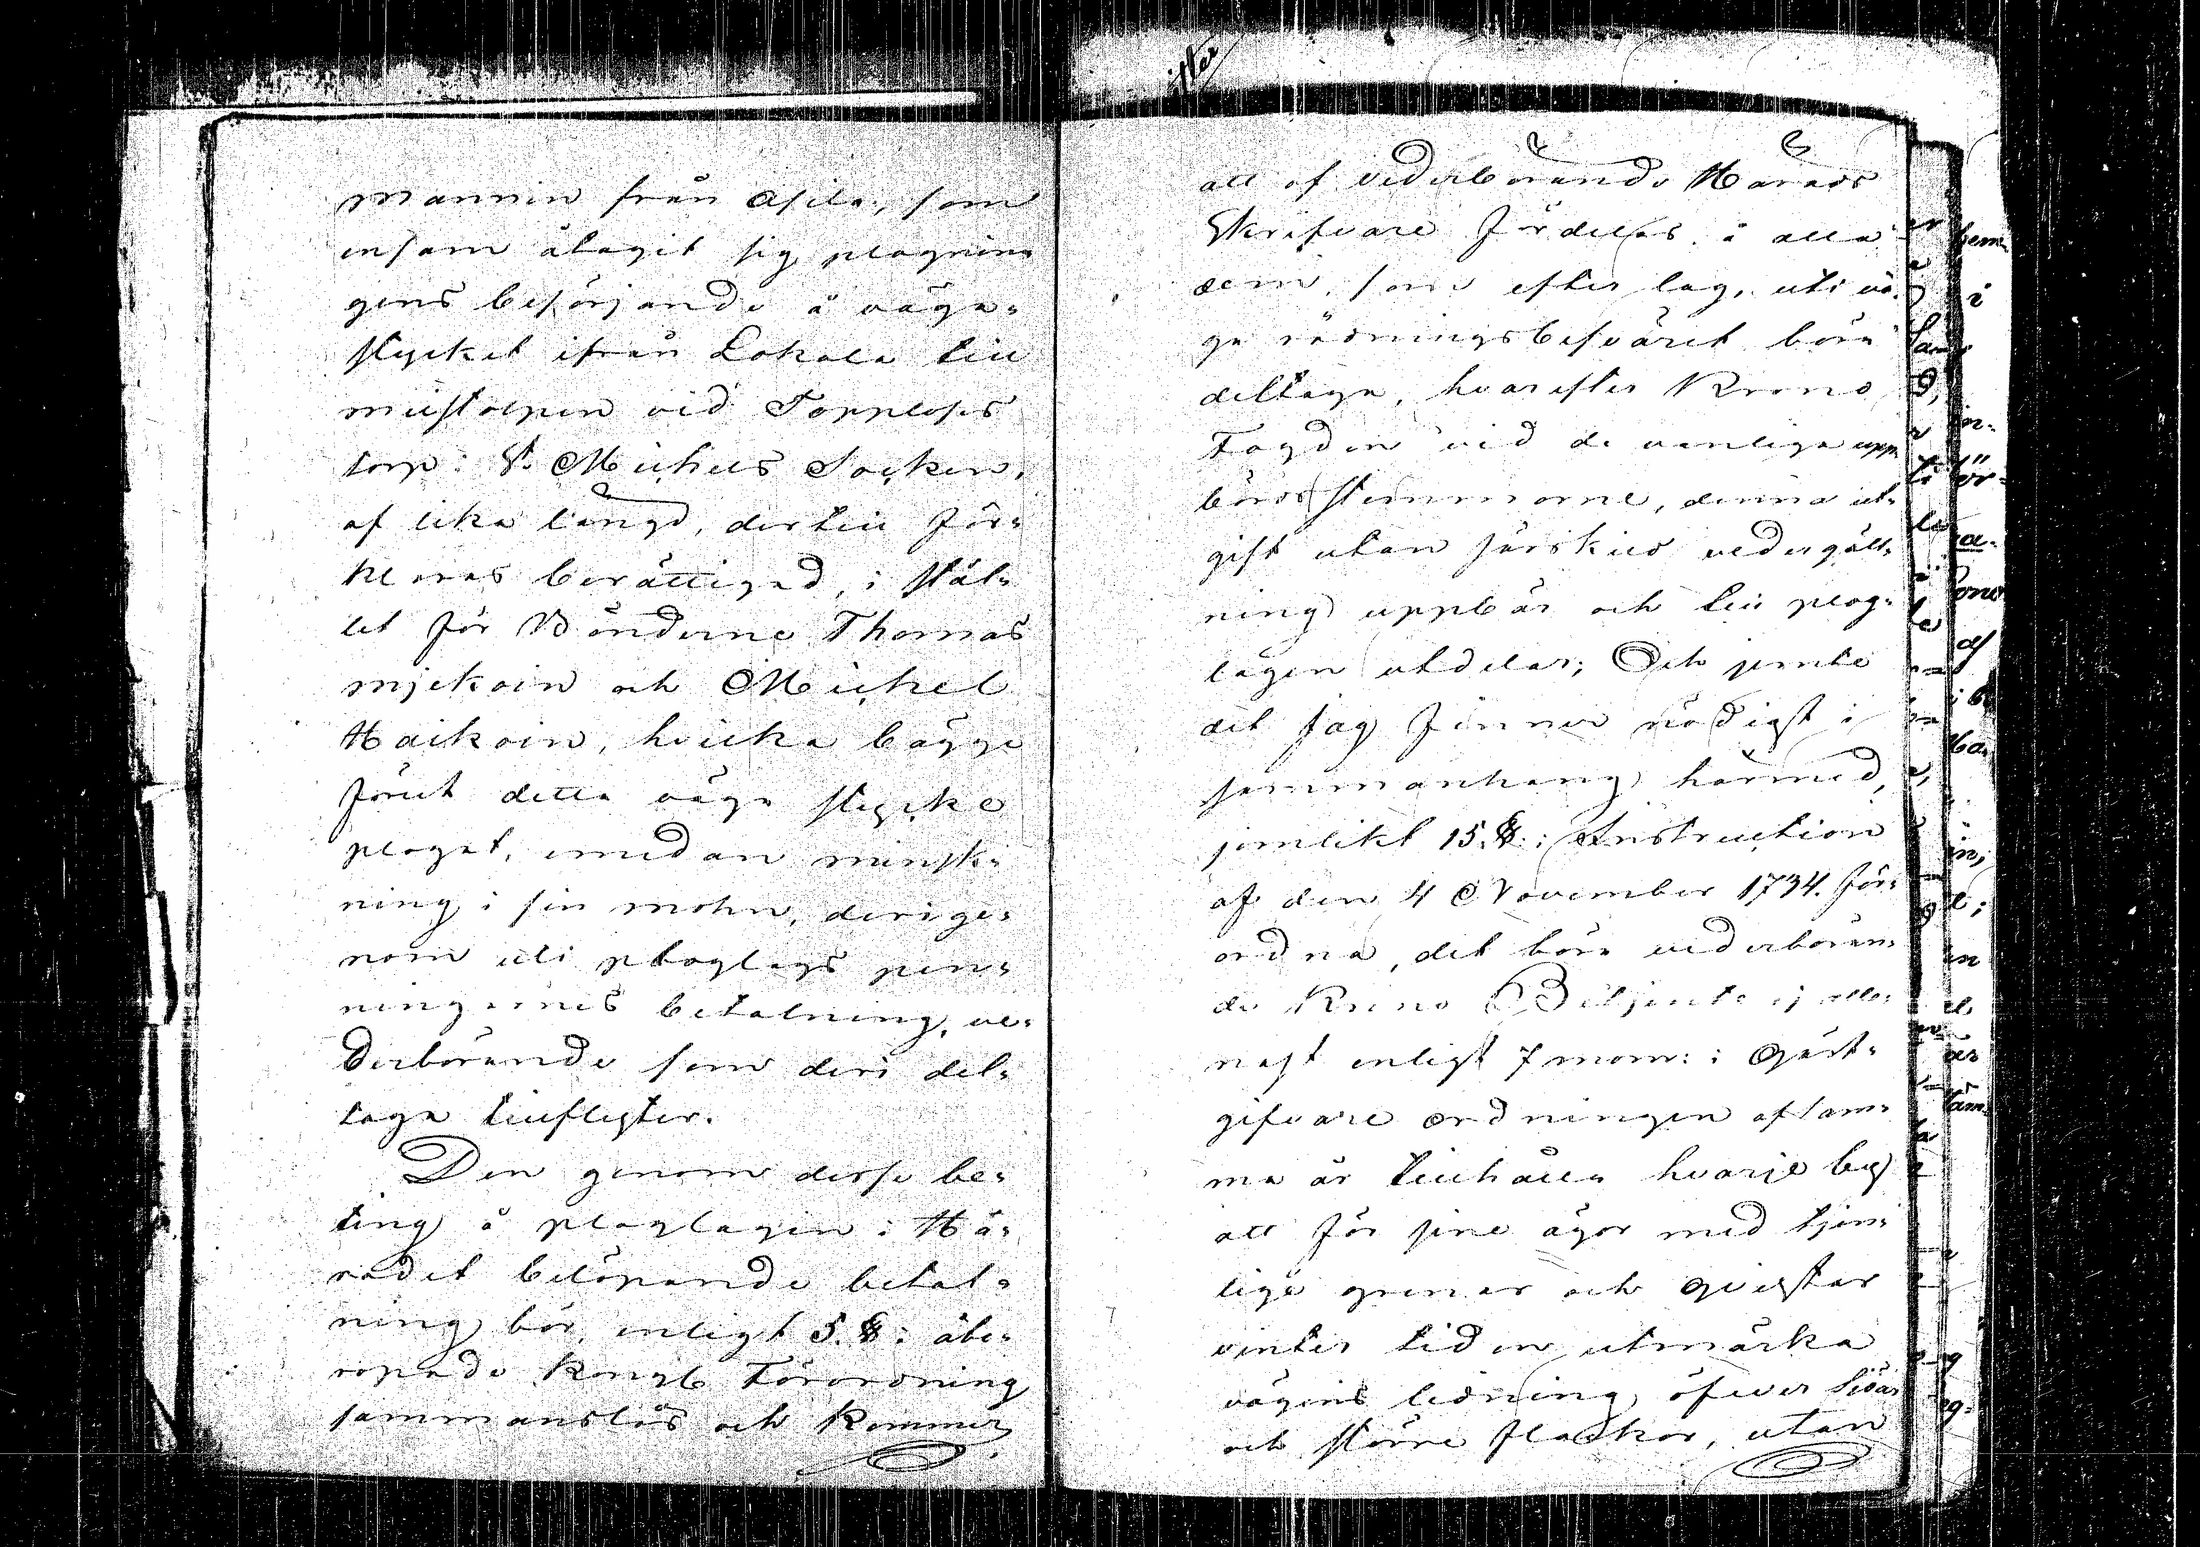 mannen från Asila, som
ensam åtagit sig plognin-
gens besörjande å väga-
stycket ifrån Lokala till
milstolpen vid
torp i St. Michels Socken,
af lika längd, dertill för-
klaras berättigad, i stäl-
let för Bönderne Thomas
och Michel
Haikoin, hvilka bägge
förut detta väga stycke
plogat, emedan minsk-
ning i sin mohn, derige-
nom uti ploglags pen-
ningarnes betalning, ve-
derbörande som deri del-
taga tillflyter.
Den genom desse be-
ting å ploglagen i Hä-
radet belöpande betal-
ning bör, enligt 5. §. i åbe-
ropade Kongl Förordning
sammanslås och kommer
att af vederbörande Härads
Skrifvare fördelas å alla
dem, som efter lag, uti vä-
ga rödningsbesväret böra
deltaga, hvarefter Krono
Fogden vid de vanliga upp
börds stemmorne, denna ut-
gift utan särskild vedergäll-
ning uppbär och till plog-
lagen utdelar; Och jemte
det jag finner nödigt i
sammanhang härmed,
jemlikt 15. §. i Instruction
af den 4 November 1734. för-
ordna, det böra vederböran-
de Krono Betjente ej alle-
nast enligt 7 mom: i Gäst-
gifvare ordningen af sam-
ma år tillhålla hvarje by
att för sine ägor med tjen-
lige grenar och qvistar
vinter tiden utmärka
vägens ledning öfver Sjöar
och större flackor, utan